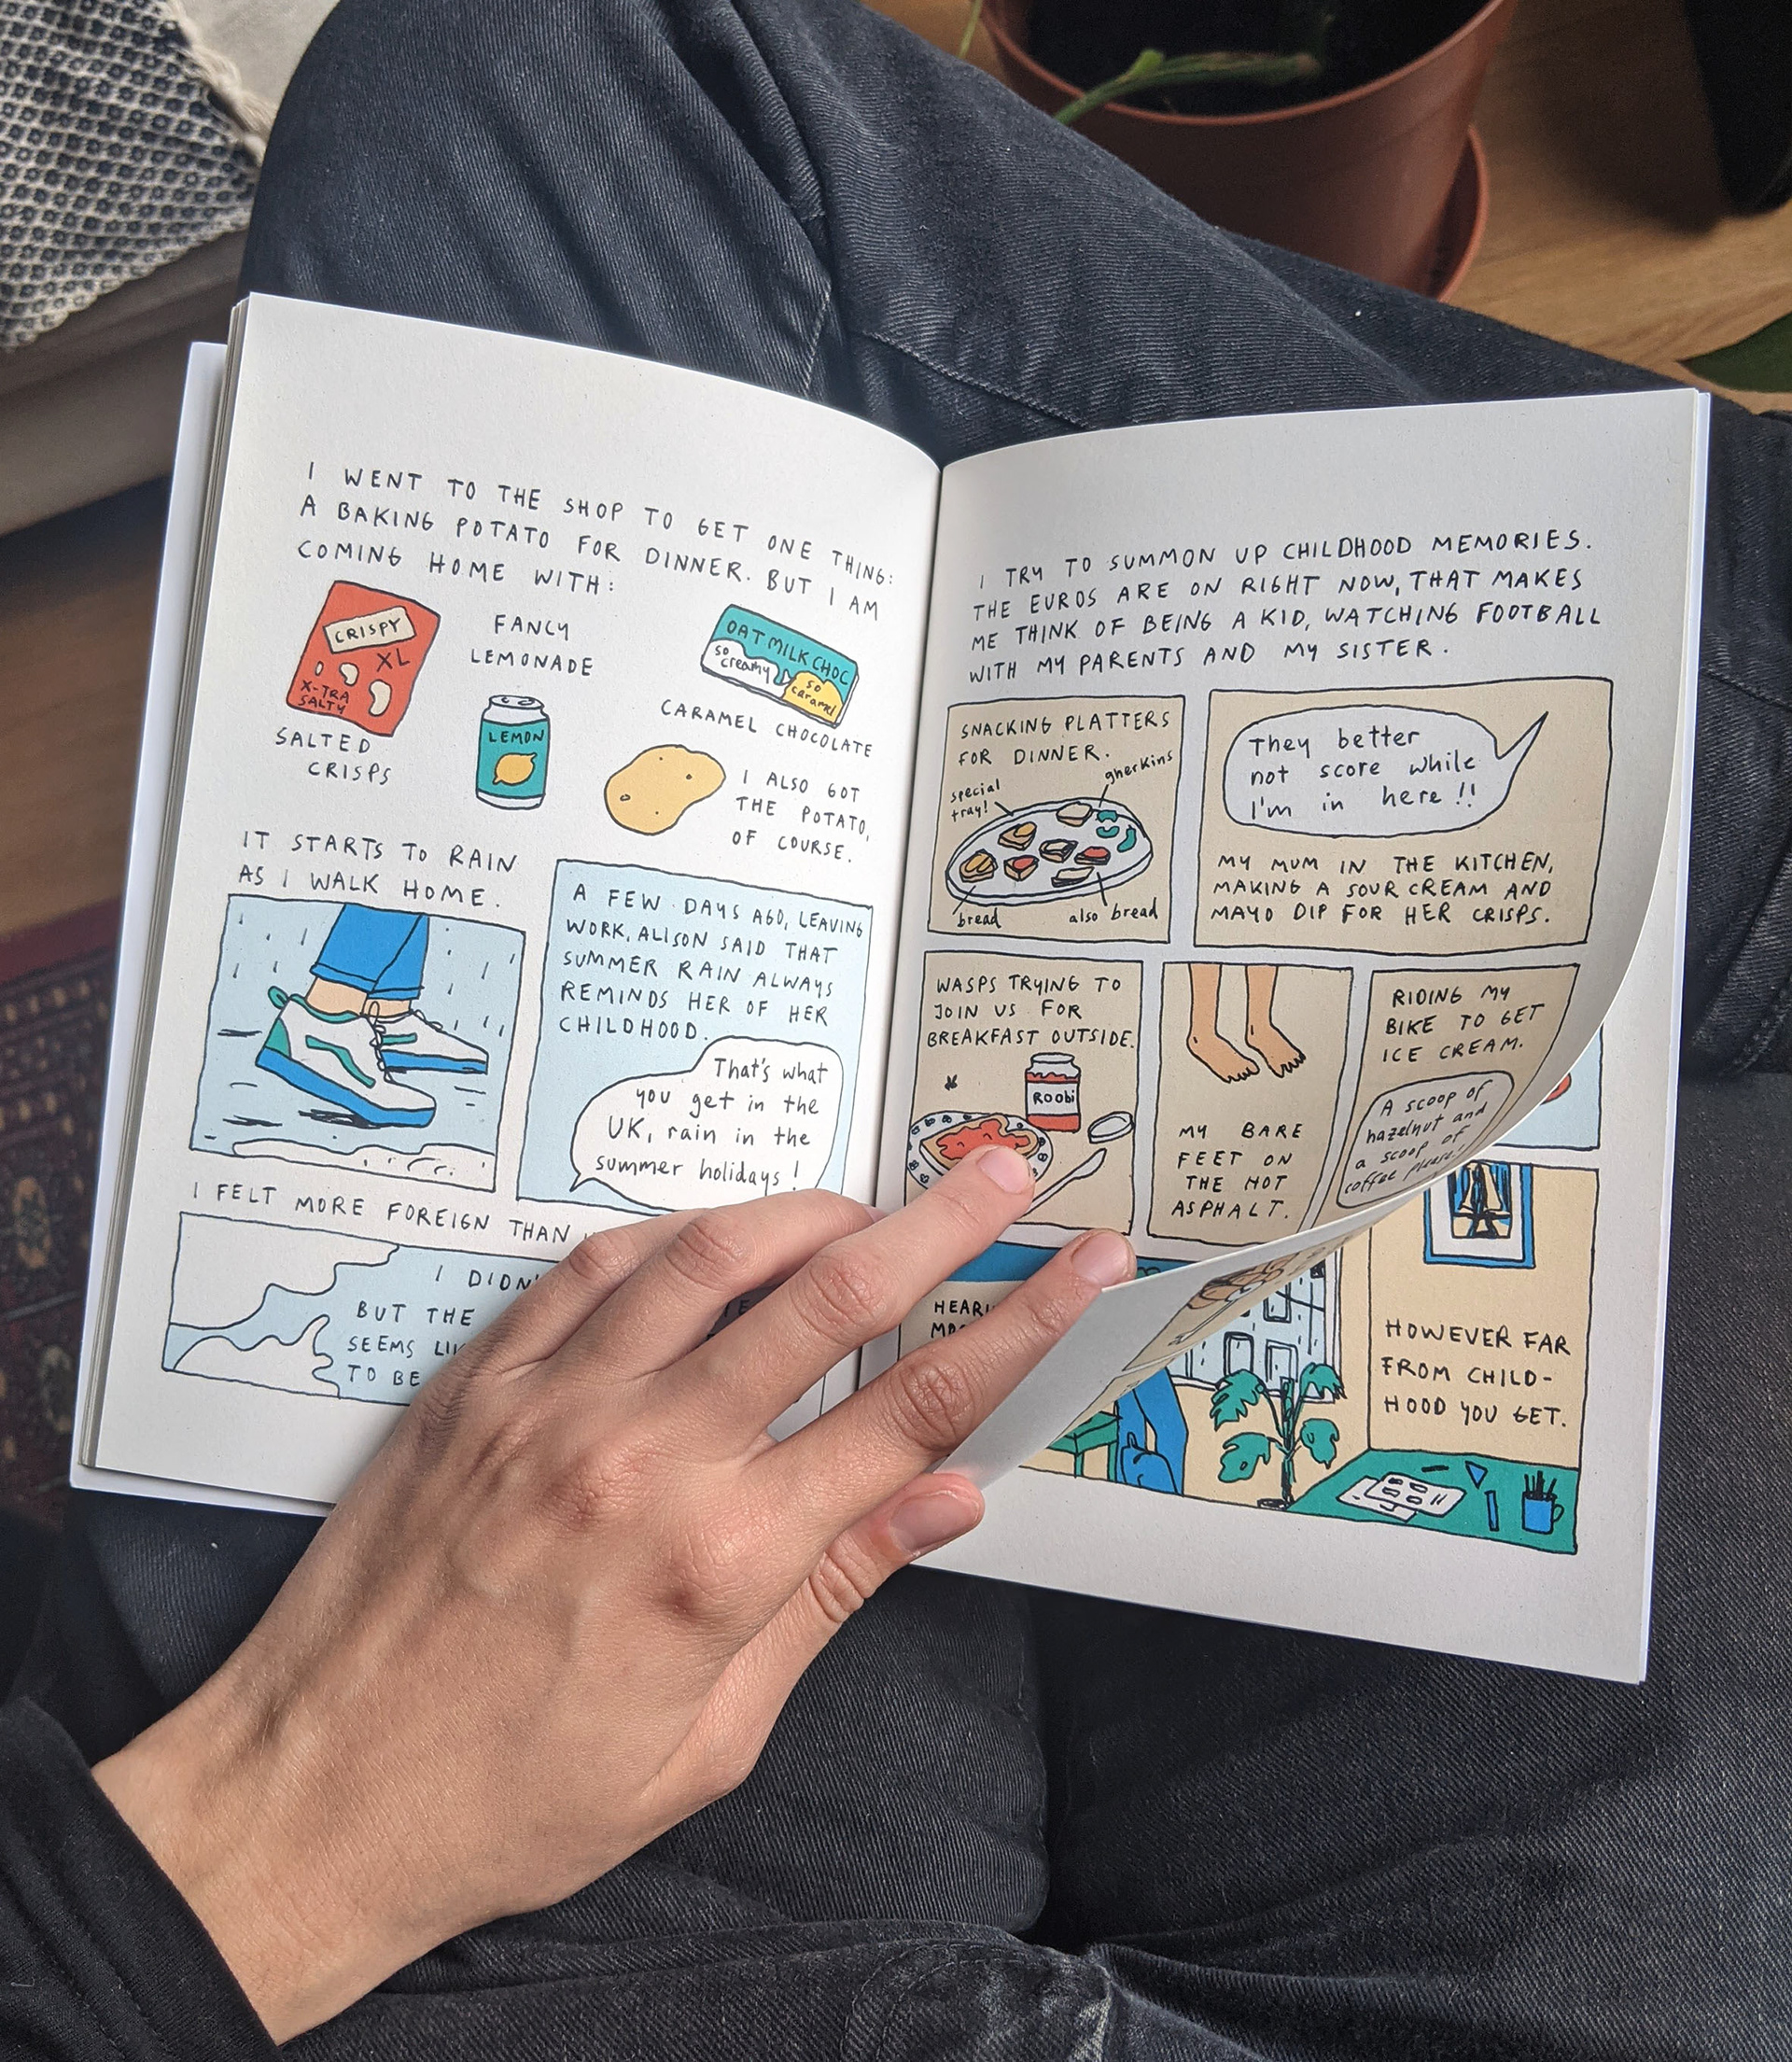 I WENT TO THE SHOP TO GET ONE THING:
A BAKING POTATO FOR DINNER. BUT I AM
COMING HOME WITH:
CRISPY
XL
X-TRA
SALTY
SALTED
CRISPS
FANCY
LEMONADE
LEMON
OATMILK CHOC
so
creamy
so
caramel
CARAMEL CHOCOLATE
I ALSO GOT
THE POTATO,
OF COURSE.
IT STARTS TO RAIN
AS I WALK HOME.
A FEW DAYS AGO, LEAVING
WORK, ALISON SAID THAT
SUMMER RAIN ALWAYS
REMINDS HER OF HER
CHILDHOOD.
That's what
you get in the
UK, rain in the
summer holidays!
I FELT MORE FOREIGN THAN
I
BUT THE
SEEMS
TO BE
I TRY TO SUMMON UP CHILDHOOD MEMORIES.
THE EUROS ARE ON RIGHT NOW, THAT MAKES
ME THINK OF BEING A KID, WATCHING FOOTBALL
WITH MY PARENTS AND MY SISTER.
SNACKING PLATTERS
FOR DINNER.
special
tray!
gherkins
bread
also bread
They better
not score while
I'm in here!!
MY MUM IN THE KITCHEN,
MAKING A SOUR CREAM AND
MAYO DIP FOR HER CRISPS.
WASPS TRYING TO
JOIN US FOR
BREAKFAST OUTSIDE.
Roobi
MY BARE
FEET ON
THE HOT
ASPHALT.
RIDING MY
BIKE TO GET
ICE CREAM.
A scoop of
hazelnut and
a scoop of
coffee please!
HOWEVER FAR
FROM CHILD-
HOOD YOU GET.